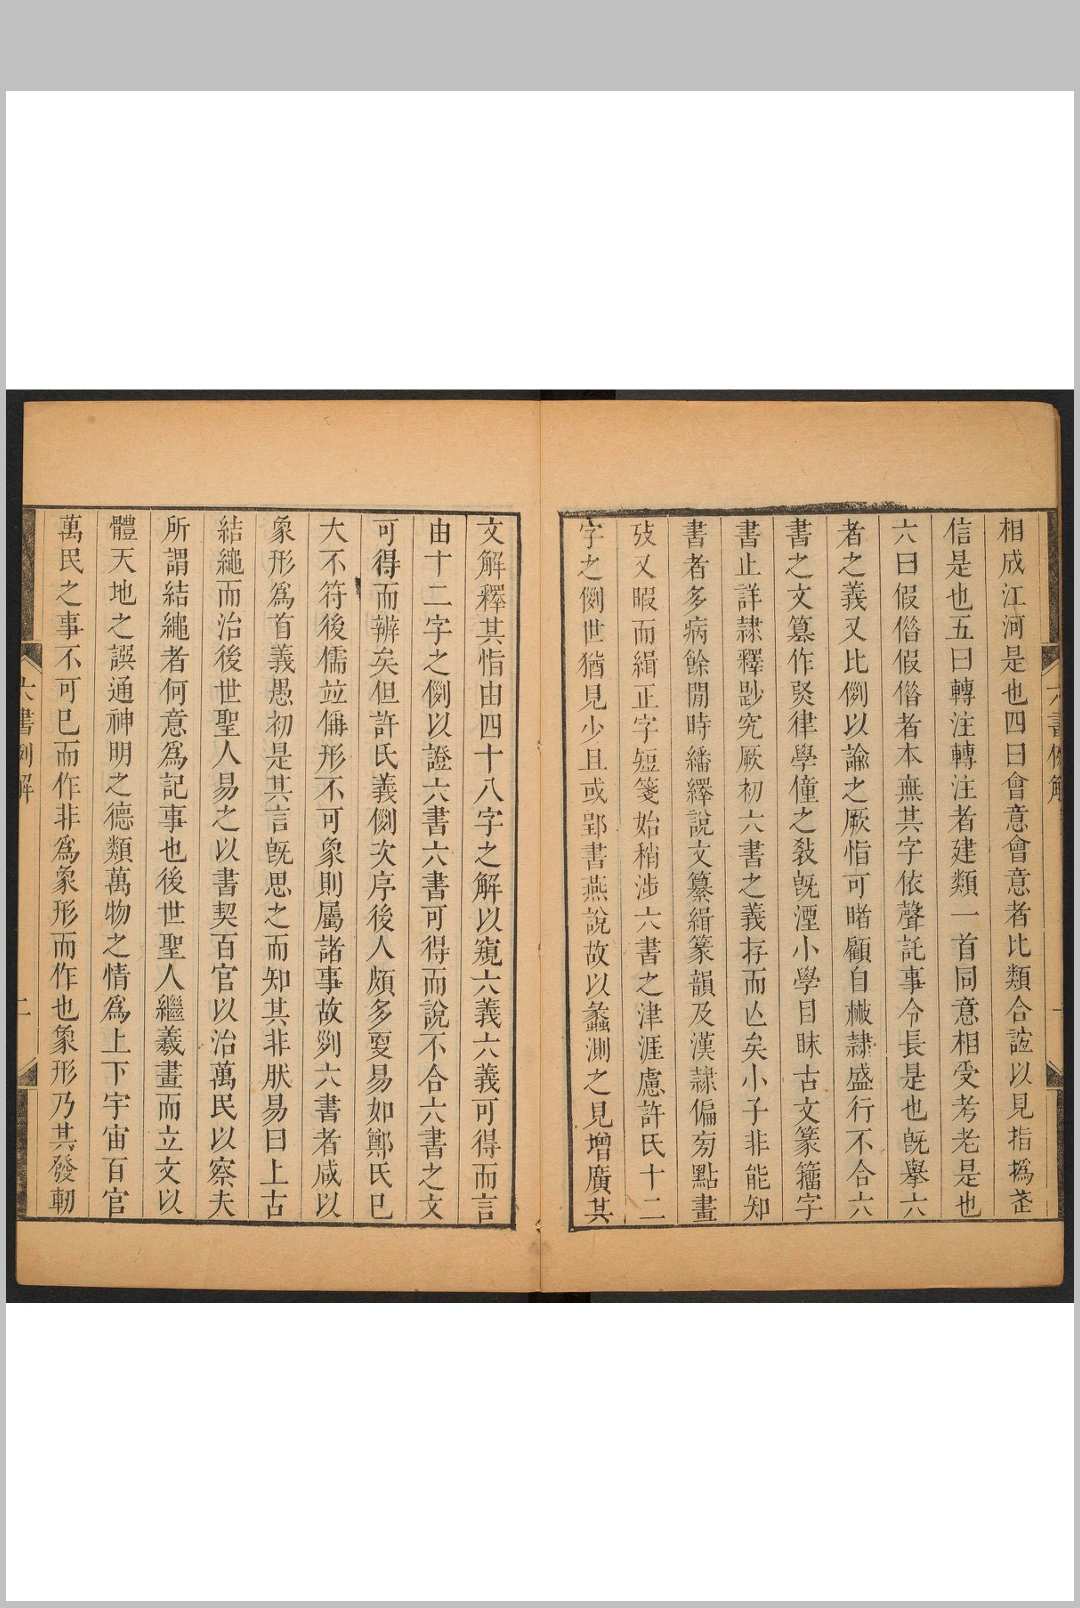 相成江河是也四曰會意會意者比類合誼以見指撝武
信是也五曰轉注轉注者建類一首同意相受考老是也
六曰假借假借者本無其字依聲託事令長是也旣擧六
者之義又比例以諭之厥恉可睹顧自楙隸盛行不合六
書之文篡作煛律學僮之敎旣湮小學目眛古文篆籒字
書止詳隸釋尟究厥初六書之義存而亾矣小子非能知
書者多病餘閒時繙繹說文纂緝篆韻及漢隸偏旁點畫
攷又暇而緝正字短箋始稍涉六書之津涯慮許氏十二
字之例世猶見少且或郢書燕說故以蠡測之見增廣其
文解釋其恉由四十八字之解以窺六義六義可得而言
由十二字之例以證六書六書可得而說不合六書之文
可得而辦矣但許氏義例次序後人頗多㪅易如鄭氏已
大不符後儒竝偁形不可象則屬諸事故列六書者咸以
象形爲首義愚初是其言旣思之而知其非肰易曰上古
結繩而治後世聖人易之以書契百官以治萬民以察夫
所謂結繩者何意爲記事也後世聖人繼羲畫而立文以
體天地之譔通神明之德類萬物之情爲上下宇宙百官
萬民之事不可已而作非爲象形而作也象形乃其發軔
六書例解
二